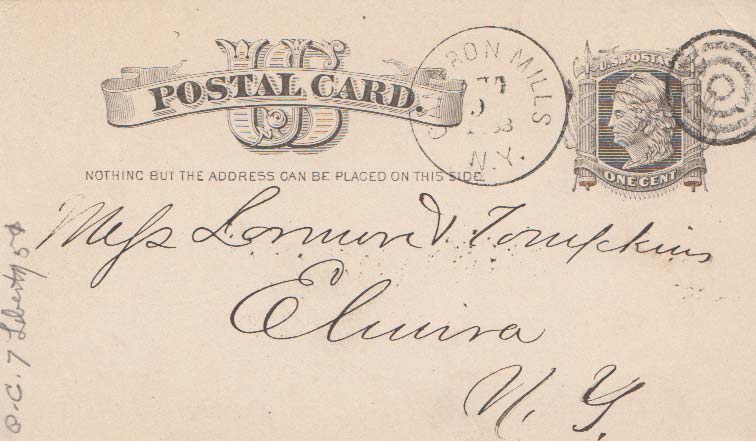 US
POSTAL CARD.
RON MILLS
N.Y.
U.S. POSTAGE
ONE CENT
NOTHING BUT THE ADDRESS CAN BE PLACED ON THIS SIDE.
Mess Lormore & Tompkins
Elmira
N. Y.
P.C. 7 Liberty